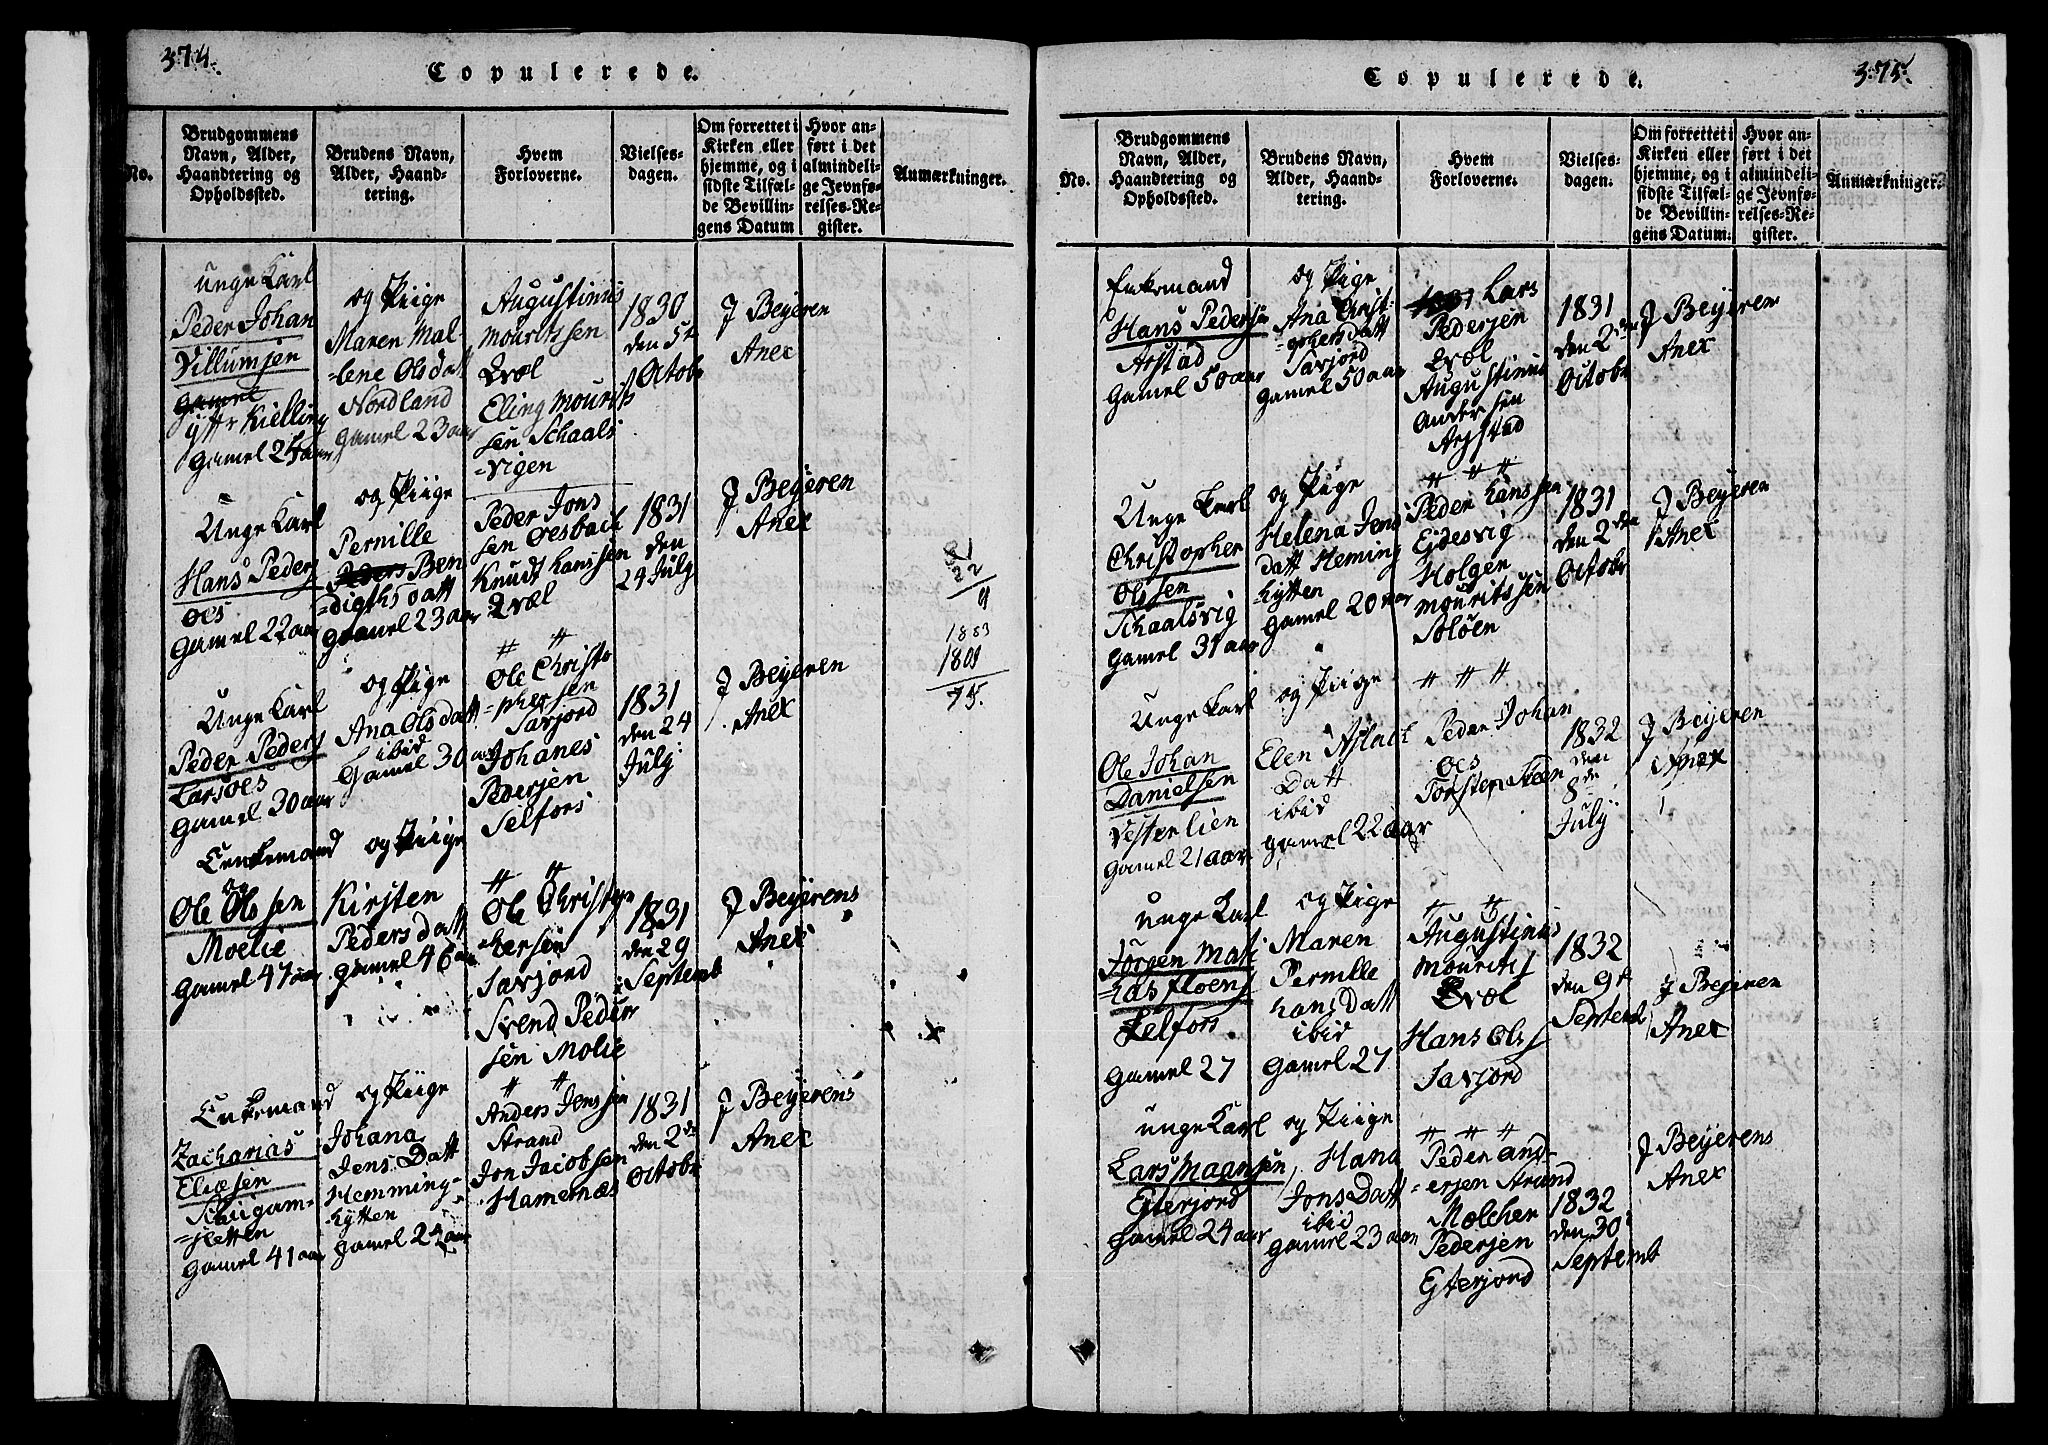 374.
Copulerede.
No.
Brudgommens
Navn, Alder,
Haandtering og
Opholdssted.
Brudens Navn,
Alder, Haand-
tering.
Hvem
Forloverne.
Vielses-
dagen.
Om forrettet i
Kirken eller
hjemme, og i
sidste Tilfæl-
de Bevillin-
gens Datum
Hvor an-
ført i det
almindeli-
ge Jevnfø-
relses-Re-
gister.
Anmærkninger.
unge Karl
Peder Johan
Villumsen
Gamel
ytt Kielling
Gamel 24 aar
og Piige
Maren Mal-
-lene Olsdatt
Nordland
Gamel 23 aar
Augustinus
Mouritssen
Evæl
Eling Mourits
sen Schaals
-vigen
1830
den 5te
Octobr
J Beyeren
Anex
Unge Karl
Hans Peders
Oes
Gamel 22 aar
og Piige
Pernille
Peders Ben
-digths datt
Gamel 23 aar
Peder Jons
sen Oesbach
Knudt Hanssen
Evæl
1831
den
24 July
J Beyeren
Anex
2
9
1883
1809
75.
Unge Karl
Peder Peders
Larsoes
Gamel 30 aar
og Piige
Ana Olsdatt
ibid
Gamel 30 aar
" "
Ole Christo
-phersen
Saxjord
Johanes
Pedersen
Selfors
1831
den 24
July
J Beyeren
Anex
Enkemand
og
Ole Olssen
Moelie
Gamel 47 aar
og Piige
Kirsten
Peders datt
Gamel 46 aar
" "
Ole Christop
-hersen
Saxjord
Svend Peder
sen Molie
1831
den 29
Septemb
J Beyerens
Anex
Enkemand
Zacharias
Eliesen
-sletten
Gamel 41 aar
og Piige
Johana
Jens Datt
Hemming-
-hytten
Gamel 24 aar
" "
Anders Jenssen
Strand
Jon Jacobsen
Hamernæs
1831
den 2de
Octobr
J Beyerens
Anex
375.
Copulerede.
No.
Brudgommens
Navn, Alder,
Haandtering og
Opholdssted.
Brudens Navn,
Alder, Haand-
tering.
Hvem
Forloverne.
Vielses-
dagen.
Om forrettet i
Kirken eller
hjemme, og i
sidste Tilfæl-
de Bevillin-
gens Datum.
Hvor an-
ført i det
almindeli-
ge Jevnfø-
relses-Re-
gister.
Anmærkninger.
Enkemand
Hans Pedersen
Arstad
Gamel 50 aar
og Piige
Ana Christ-
-ophersdatt
Saxjord
Gamel 50 aar
1831 Lars
Pedersen
Evæl
Augustinus
Andersen
Arstad
1831
den 2den
Octobr
J Beyeren
Anex
Unge Karl
Christopher
Olssen
Schaalsvig
Gamel 31 aar
og Piige
Helena Jens
datt Heming
-hytten
Gamel 20 aar
" " "
Peder Hanssen
Ejdesvig
Holgen
Mouritssen
Soløen
1831
den 2den
Octobr
J Beyeren
Anex
Unge Karl
Ole Johan
Danielsen
Vesterlien
Gamel 21 aar
og Piige
Elen
Datt
ibid
Gamel 22 aar
" " "
Peder Johan
Oes
1832
den
8de
July
J Beyeren
Anex
unge Karl
Jørgen Mat
-hias Floens
Selfors
Gamel 27
og Piige
Maren
Pernille
Hans Datt
ibid
Gamel 27
" "
Augustinus
Mourits
Evæl
Hans Ols
Saxjord
1832
den 9de
Septemb
J Beyeren
Anex
unge Karl
Lars Maansen
Eiterjord
Gamel 24 aar
og Piige
Hana
Jons Datt
ibid
Gamel 23 aar
" " "
Peder And-
-ersen Strand
Melcher
Pedersen
Eiterjord
1832
den 30
Septemb
J Beyerens
Anex